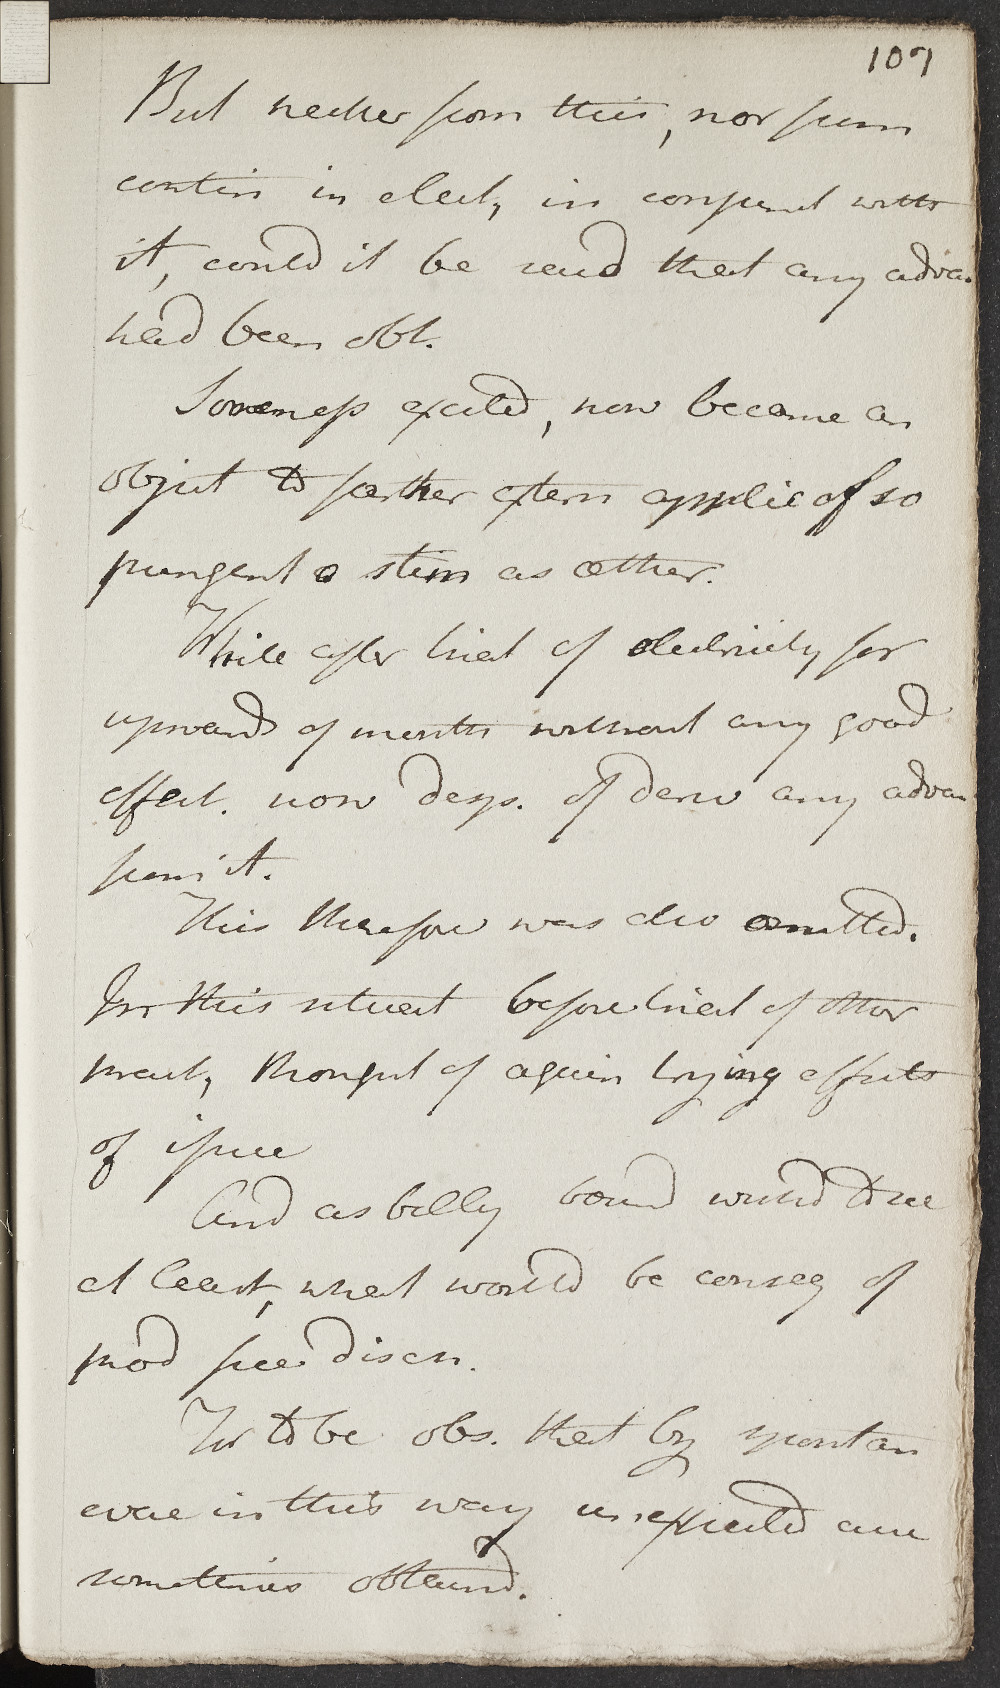 107
But neither from this, nor from
contin in elect, in conjunct with
it, could it be said that any advan
had been obt.
Soreness excited, now became an
object to farther extern applic of so
pungent a stim as æther.
While after trial of electricity for
upwards of month without any good
effect. now desp. of deriv any advan
from it.
This therefore was also omitted.
In this situat before trial of other
pract, thought of again trying effects
of issue
And as belly bound wishd to see
at least, what would be conseq of
mod free disch.
For to be obs. that by spontan
evac in this way unexpected cure
sometimes obtaind.